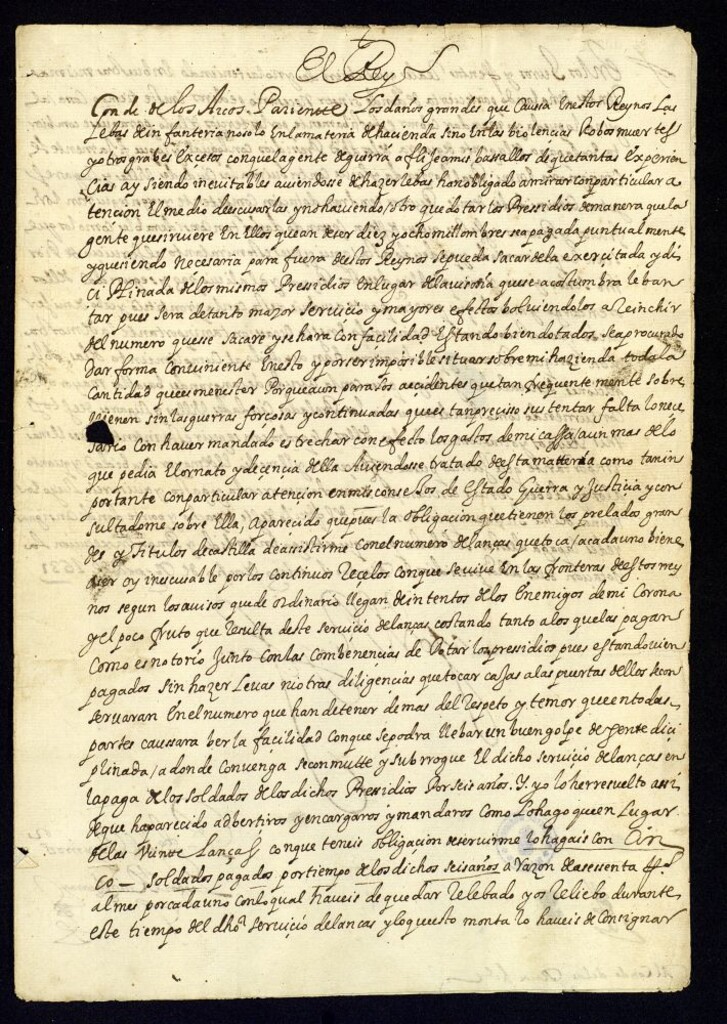 El Rey
Conde de los Arcos Pariente Los daños grandes que Causa Enestos Reynos Las
Lebas de infanteria nosolo Enlamateria de hacienda sino en las biolencias Robos muertes
y otros grabes Excesos con quela gente de guerra aflije amis bassallos de que tantas Experien
cias ay siendo inevitables aviendosse de hazer lebas han obligado amirar con particular a
tencion El medio de scusarlas y no haviendo otro que dotar los Pressidios demanera que la
gente que sirviere En Ellos que an de ser diez y ocho mill ombres sea pagada puntual mente
y que siendo necesaria para fuera destos Reynos sepueda sacar dela exercitada y di
ci Plinada delos mismos Pressidios En lugar dela visoña que se acostumbra leban
tar pues sera de tanto mayor Servicio y mayores efectos bolviendolos a Reinchir
del numero que se sacare y se hara Con facilidad Estando bien dotados, se a procurado
Dar forma Conviniente Enesto y por ser imposible situar sobre mi hazienda toda la
Cantidad que es menester Porque aun para los accidentes que tan frequente mente sobre
vienen sin las guerras forçosas y continuadas que es tan precisso sustentar falta lo nece
sario Con haver mandado estrechar con efecto los gastos de mi cassa aun mas de lo
que pedia El ornato y deçencia della Aviendosse tratado de esta matteria como tan in
portante con particular atencion en mis consejos de Estado Guerra y Justicia y con
sultadome sobre Ella, a parecido que pues la obligacion que tienen los prelados gran
des y Titulos de castilla de assistirme con el numero de lanças que toca a cada uno biene
a ser oy inescusable por los continuos Recelos con que se vive En las fronteras destos rey
nos segun los avisos que de ordinario llegan de intentos de los Enemigos de mi Corona
y el poco fruto que resulta deste servicio de lanças costando tanto a los que las pagan
Como es notorio Junto con las combenencias de Dotar los presidios pues estando vien
pagados sin hazer Levas ni otras diligencias que tocar cajas a las puertas dellos se con
servaran En el numero que han de tener demas del Respeto y temor que en todas
partes caussara ber la facilidad Con que se podra llebar un buen golpe de gente dici
plinada a donde Convenga se conmutte y subrrogue El dicho servicio de lanças en
la paga de los soldados de los dichos Pressidios Por seis años. Y yo lo he rresuelto assi
de que ha parecido advertiros y encargaros y mandaros Como Lo hago que en Lugar
de las Veinte Lanças con que teneis obligacion de servirme lo hagais con Cin
co — soldados pagados por tiempo de los dichos seis años a Razon de a sesenta Rs
al mes por cada uno Con lo qual haveis de quedar Relebado y os Reliebo durante
este tiempo del dho servicio de lanças y lo que esto monta lo haveis de Consignar